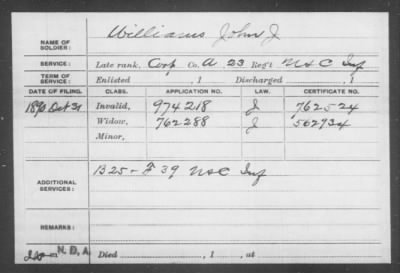 NAME OF SOLDIER: Williams John J
SERVICE: Late rank, Corp Co. A 23 Regt U S C Inf
TERM OF SERVICE: Enlisted , 1 Discharged , 1
DATE OF FILING. CLASS. APPLICATION NO. LAW. CERTIFICATE NO.
1890 Oct 31 Invalid, 974218 J 762524
Widow, 762288 J 562734
Minor,
ADDITIONAL SERVICES: B 25 - F 39 U S C Inf
REMARKS:
N. D. A. Died , 1 , at